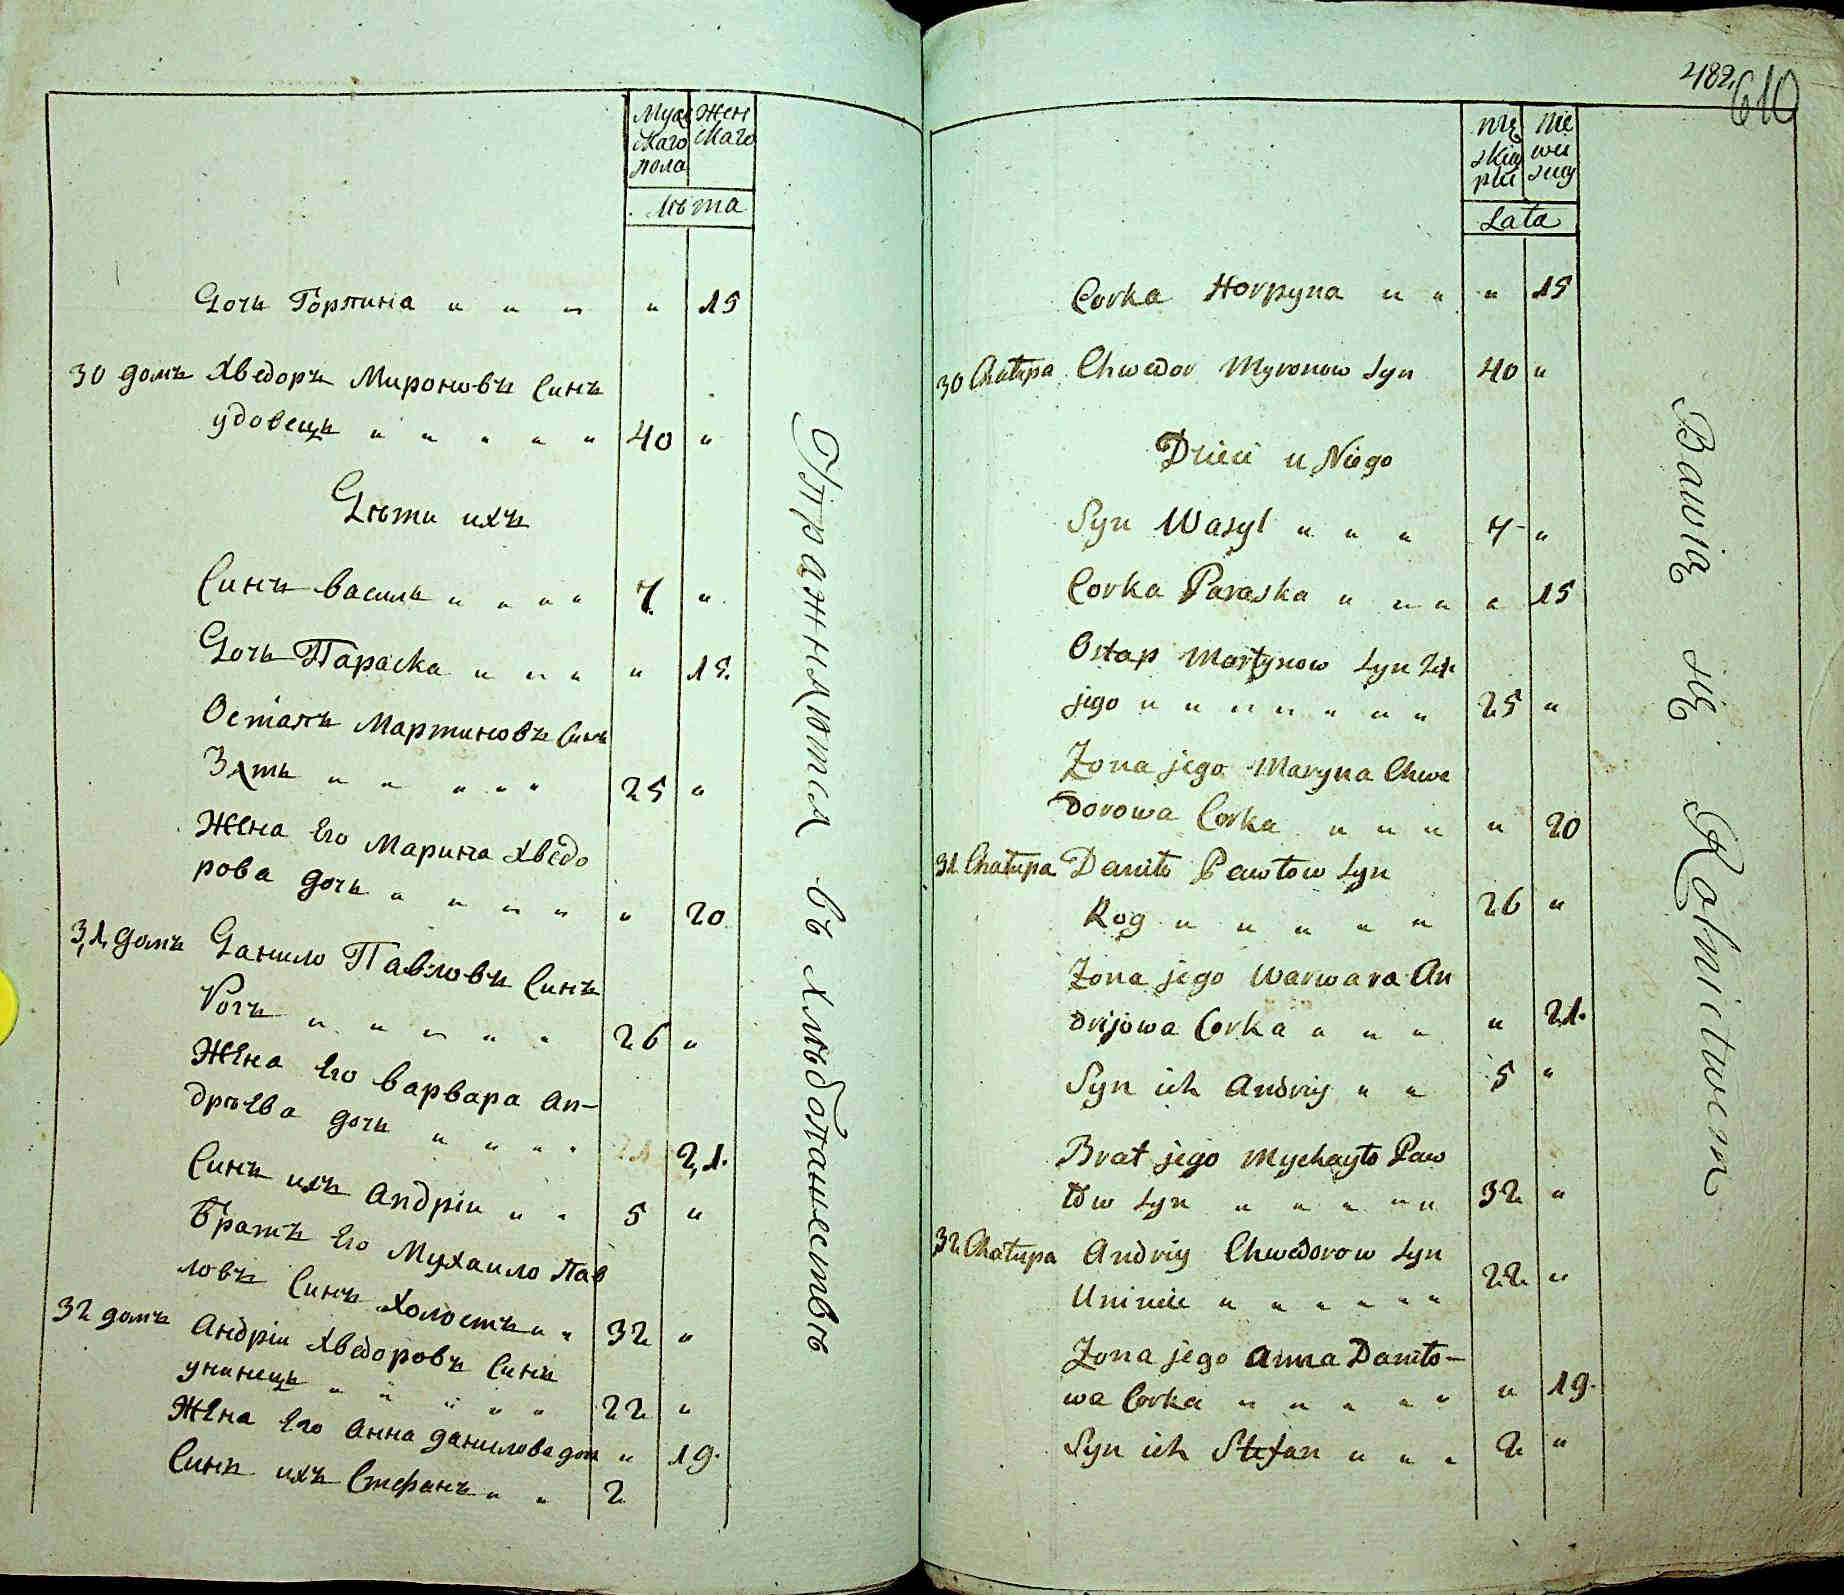 Мужскаго пола
Женскаго
лѣта
Дочь Горпина " " " " 15
30 домъ Хведоръ Мироновъ Синъ
удовецъ " " " " " 40 "
Дѣти ихъ
Синъ василь " " " " 7 "
Дочь Параска " " " " 15
Остапъ Мартиновъ Синъ
Зять " " " " " 25 "
Жена Его Марина Хведо
рова дочь " " " " " 20
31 домъ Данило Павловъ Синъ
Рогъ " " " " " 26 "
Жена Его варвара Ан-
дрѣева дочь " " " " 21
Синъ ихъ Андріи " " 5 "
Братъ Его Мухаило Пав
ловъ Синъ Холостъ " " 32 "
32 домъ Андріи Хведоровъ Синъ
унинецъ " " " " " 22 "
Жена Его Анна данилова доч " 19
Синъ ихъ Стефанъ " " 2
Упражняются въ хлѣбопашествѣ
482
610
męskiey płci
niewiesciey
Lata
Corka Horpyna " " " 15
30 Chałupa Chwedor Myronow Syn 40 "
Dzieci u Niego
Syn Wasyl " " " 7 "
Corka Paraska " " " " 15
Ostap Martynow Syn Zięć
jego " " " " " " " 25 "
Zona jego Maryna Chwe
dorowa Corka " " " " 20
31 Chałupa Daniło Pawłow Syn
Rog " " " " " 26 "
Zona jego Warwara An
drijowa Corka " " " " 21
Syn ich Andriy " " 5 "
Brat jego Mychayło Paw
łow Syn " " " " " 32 "
32 Chałupa Andriy Chwedorow Syn
Uniniec " " " " " " 22 "
Zona jego Anna Daniło-
wa Corka " " " " " " 19
Syn ich Stefan " " " 2 "
Bawią się Rolnictwem